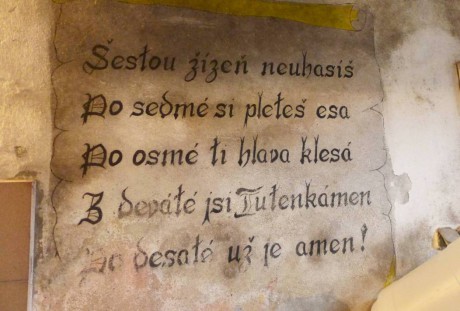 Šestou žízeň neuhasíš
Po sedmé si pleteš esa
Po osmé ti hlava klesá
Z deváté jsi Tutenkámen
Po desáté už je amen!